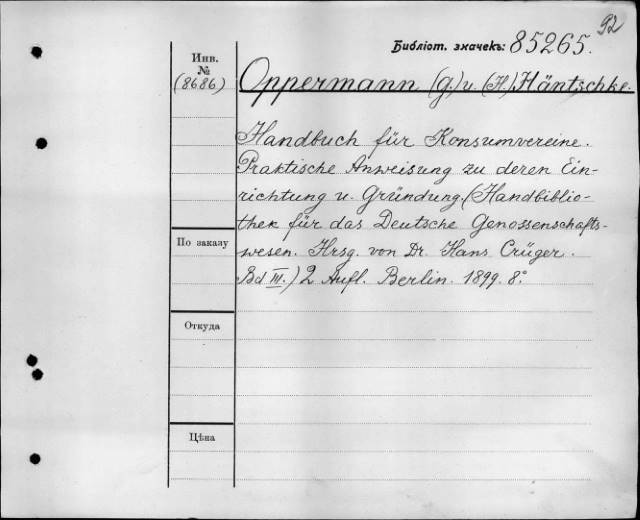 92
Библіот. значекъ: 85265.
Инв.
№
(8686)
Oppermann (G.) u. (H.) Häntschke.
Handbuch für Konsumvereine.
Praktische Anweisung zu deren Ein-
richtung u. Gründung. (Handbiblio-
thek für das Deutsche Genossenschafts-
wesen. Hrsg. von Dr. Hans Crüger.
Bd III.) 2 Aufl. Berlin. 1899. 8°.
По заказу
Откуда
Цѣна